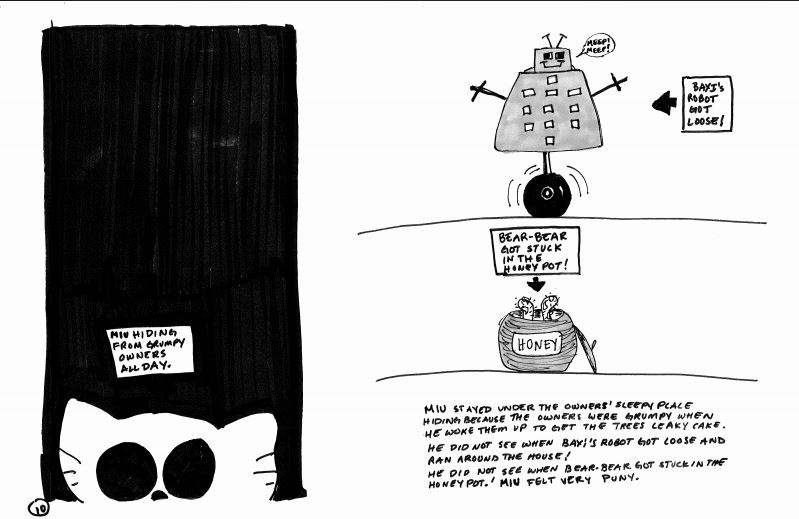 MIU HIDING
FROM GRUMPY
OWNERS
ALL DAY.
10
MEEP!
MEEP!
BAXI'S
ROBOT
GOT
LOOSE!
BEAR-BEAR
GOT STUCK
IN THE
HONEY POT!
HONEY
MIU STAYED UNDER THE OWNERS' SLEEPY PLACE
HIDING BECAUSE THE OWNERS WERE GRUMPY WHEN
HE WOKE THEM UP TO GET THE TREES LEAKY CAKE.
HE DID NOT SEE WHEN BAXI'S ROBOT GOT LOOSE AND
RAN AROUND THE HOUSE!
HE DID NOT SEE WHEN BEAR-BEAR GOT STUCK IN THE
HONEY POT! MIU FELT VERY PUNY.